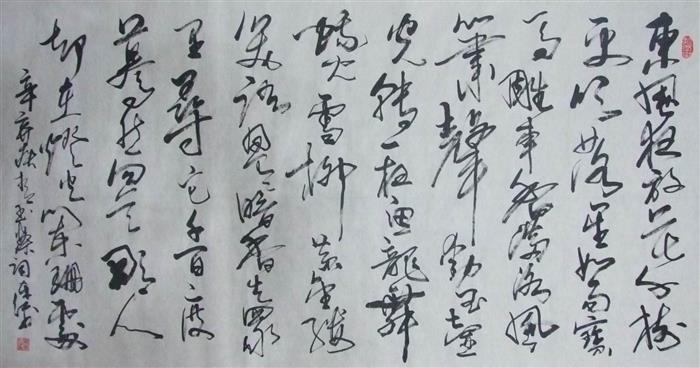 東風夜放花千樹
更吹落星如雨寶
馬雕車香滿路鳳
簫聲動玉壺
光轉一夜魚龍舞
蛾兒雪柳黃金縷
笑語盈盈暗香去眾
里尋它千百度
驀然回首那人
却在燈火闌珊處
辛弃疾青玉案詞